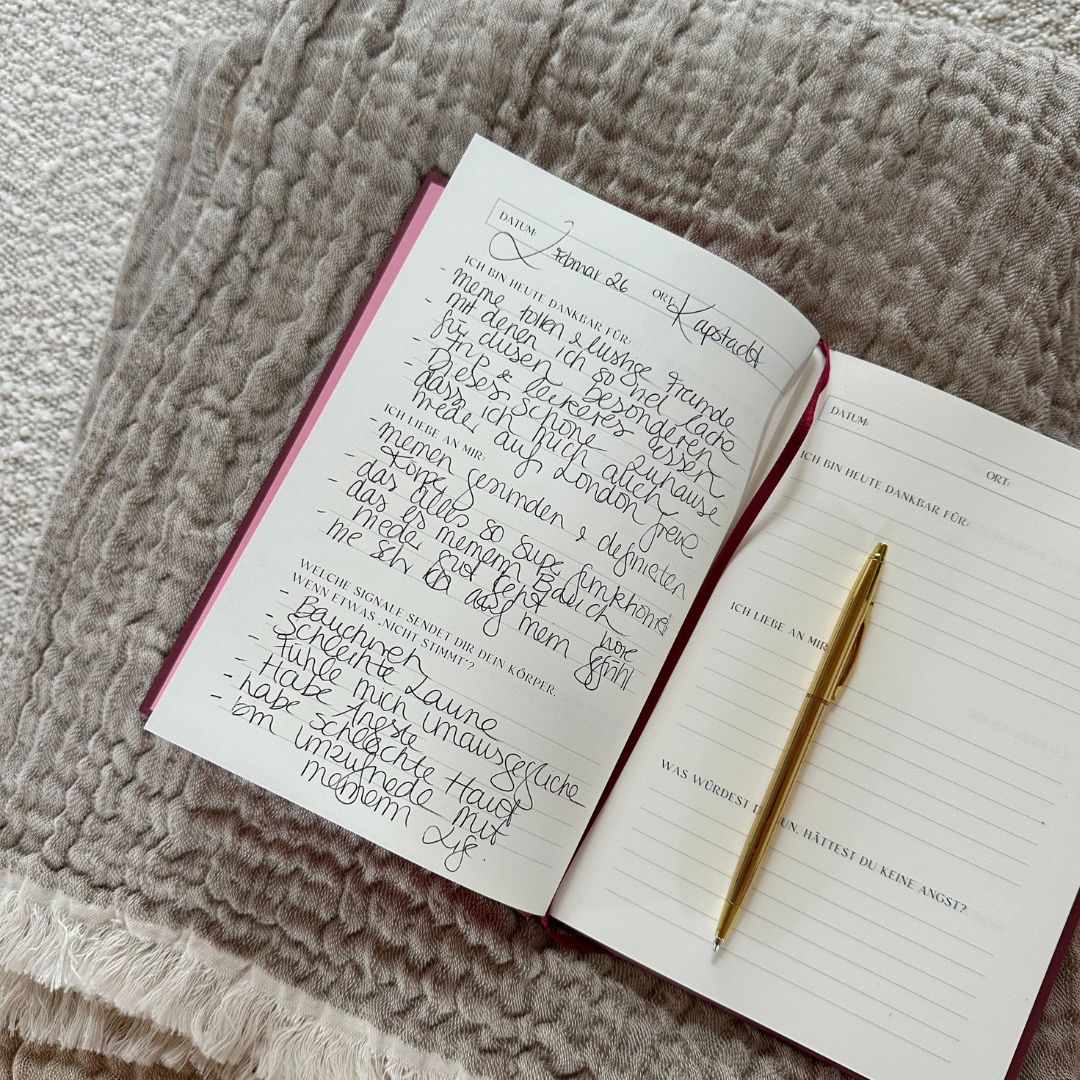 DATUM:
2 Februar 26
ORT: Kapstadt
ICH BIN HEUTE DANKBAR FÜR:
- meine tollen & lustige Freunde
mit denen ich so viel lache
- für diesen besonderen
Trip & leckeres Essen
- Dieses schöne Zuhause
dass ich mich auch
wieder auf London freue
ICH LIEBE AN MIR:
- meinen gesunden & definierten
Körper
- das alles so super funktioniert
- das es meinem Bauch
wieder gut geht
- wie sehr ich auf mein Gefühl
höre
WELCHE SIGNALE SENDET DIR DEIN KÖRPER,
WENN ETWAS „NICHT STIMMT“?
- Bauchweh
- Schlechte Laune
- Fühle mich unausgeglichen
- Habe Ängste
- habe schlechte Haut
- bin unzufriede mit
meinem
DATUM:
ORT:
ICH BIN HEUTE DANKBAR FÜR:
ICH LIEBE AN MIR
WAS WÜRDEST UN, HÄTTEST DU KEINE ANGST?